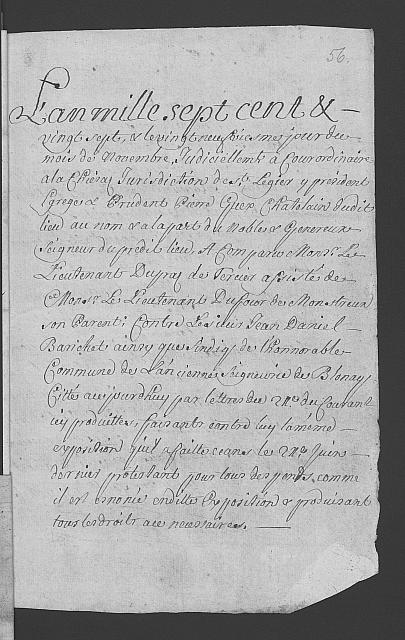 56.
L'an mille sept cent &
vingt sept, & le vingt neufviesmes jour du
mois de Novembre, Judiciellemt à Cour ordinaire
a la Chiésaz Jurisdiction de St. Legier y president
Egrege & Prudent Pierre Guex Chatelain dudit
lieu au nom & a la part du Nobles & Genereux
Seigneur du predit lieu, A Comparu Monsr. Le
Lieutenant Dupraz de Tercier assisté de
Monsr. Le Lieutenant Dufour de Monstreux
son Parent. Contre Le Sieur Jean Daniel
Barichet ainsy que Sindiq de l'honnorable
Commune de L'anciennes Seigneurie de Blonay
Citte aujourdhuy par lettres du 21e. du Courant
icy produittes, faisants contre luy la meme
exposition qu'il a faitte ceans le 24e Juin
dernier protestant pour tous despends, comme
il est enoncé en ditte Exposition & produisant
tous les droits a ce necessaires.